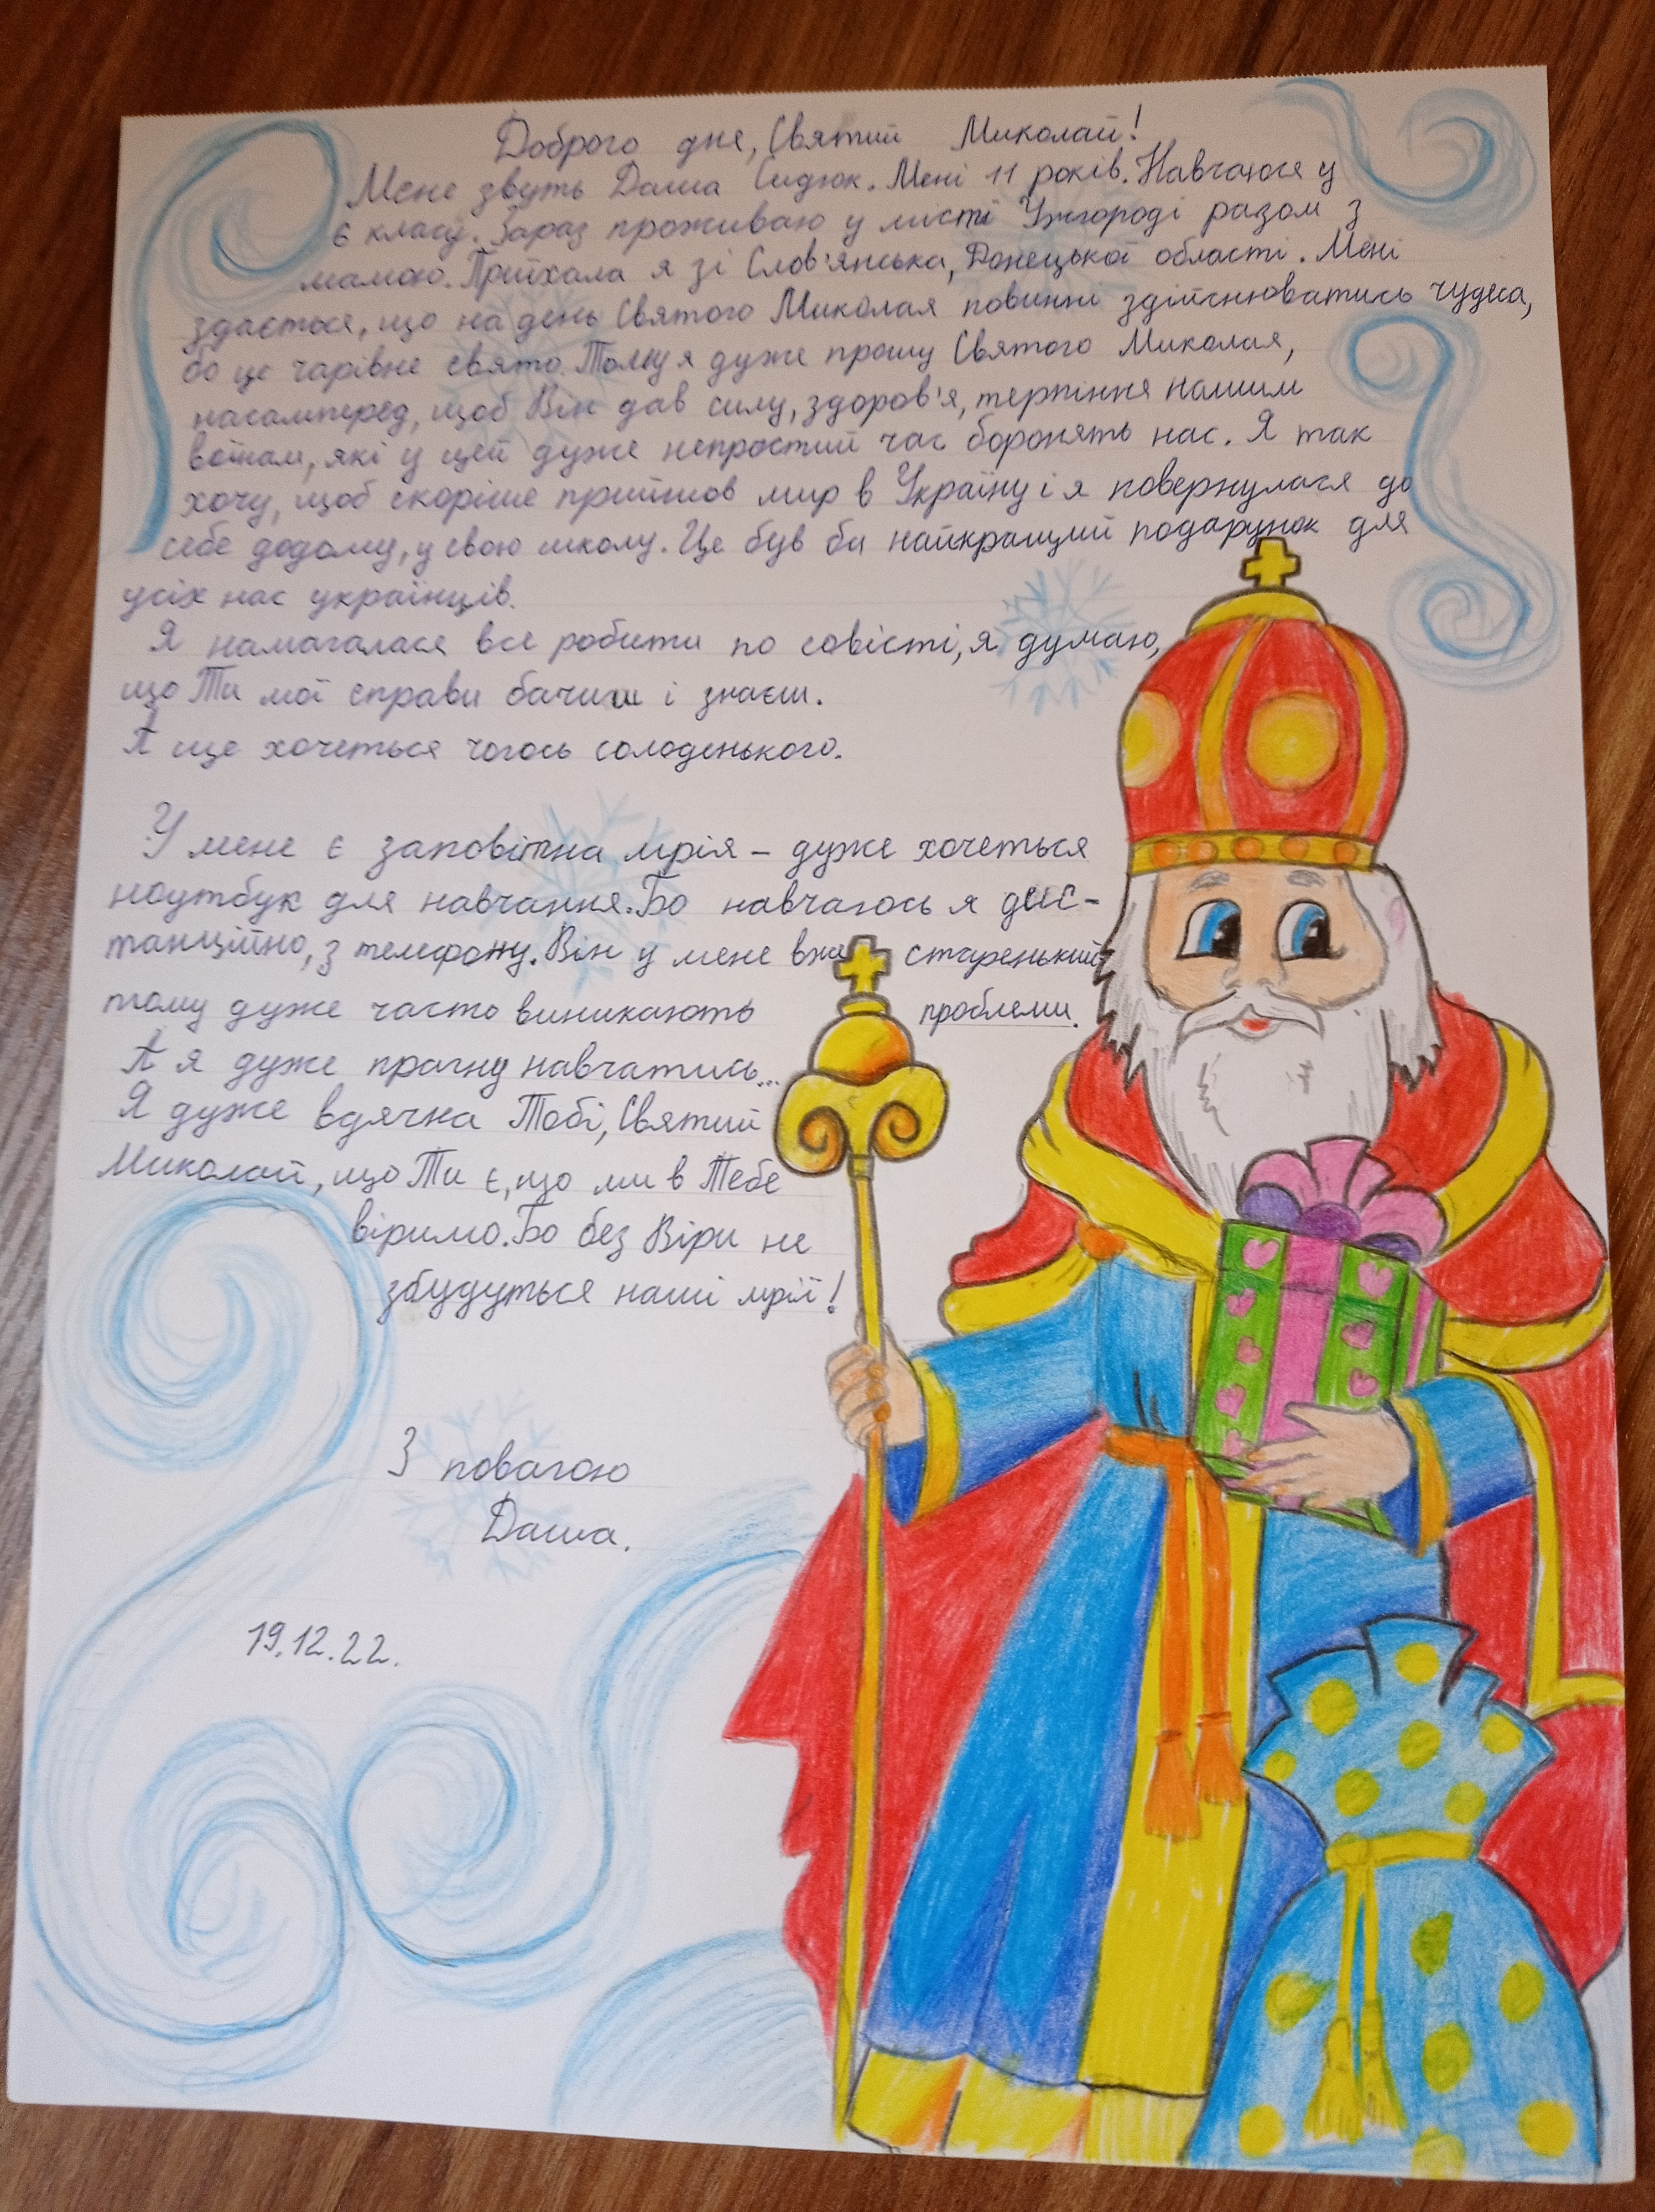 Доброго дня, Святий Миколай!
Мене звуть Даша Сидюк. Мені 11 років. Навчаюся у
6 класу. Зараз проживаю у місті Ужгороді разом з
мамою. Приїхала я зі Слов'янська, Донецької області. Мені
здається, що на день Святого Миколая повинні здійснюватись чудеса,
бо це чарівне свято. Тому я дуже прошу Святого Миколая,
насамперед, щоб Він дав силу, здоров'я, терпіння нашим
воїнам, які у цей дуже непростий час боронять нас. Я так
хочу, щоб скоріше прийшов мир в Україну і я повернулася до
себе додому, у свою школу. Це був би найкращий подарунок для
усіх нас українців.
Я намагалася все робити по совісті, я думаю,
що Ти мої справи бачиш і знаєш.
А ще хочеться чогось солоденького.
У мене є заповітна мрія – дуже хочеться
ноутбук для навчання. Бо навчаюсь я дис-
танційно, з телефону. Він у мене вже старенький
тому дуже часто виникають проблеми.
А я дуже прагну навчатись...
Я дуже вдячна Тобі, Святий
Миколай, що Ти є, що ми в Тебе
віримо. Бо без Віри не
збудуться наші мрії!
З повагою
Даша.
19.12.22.